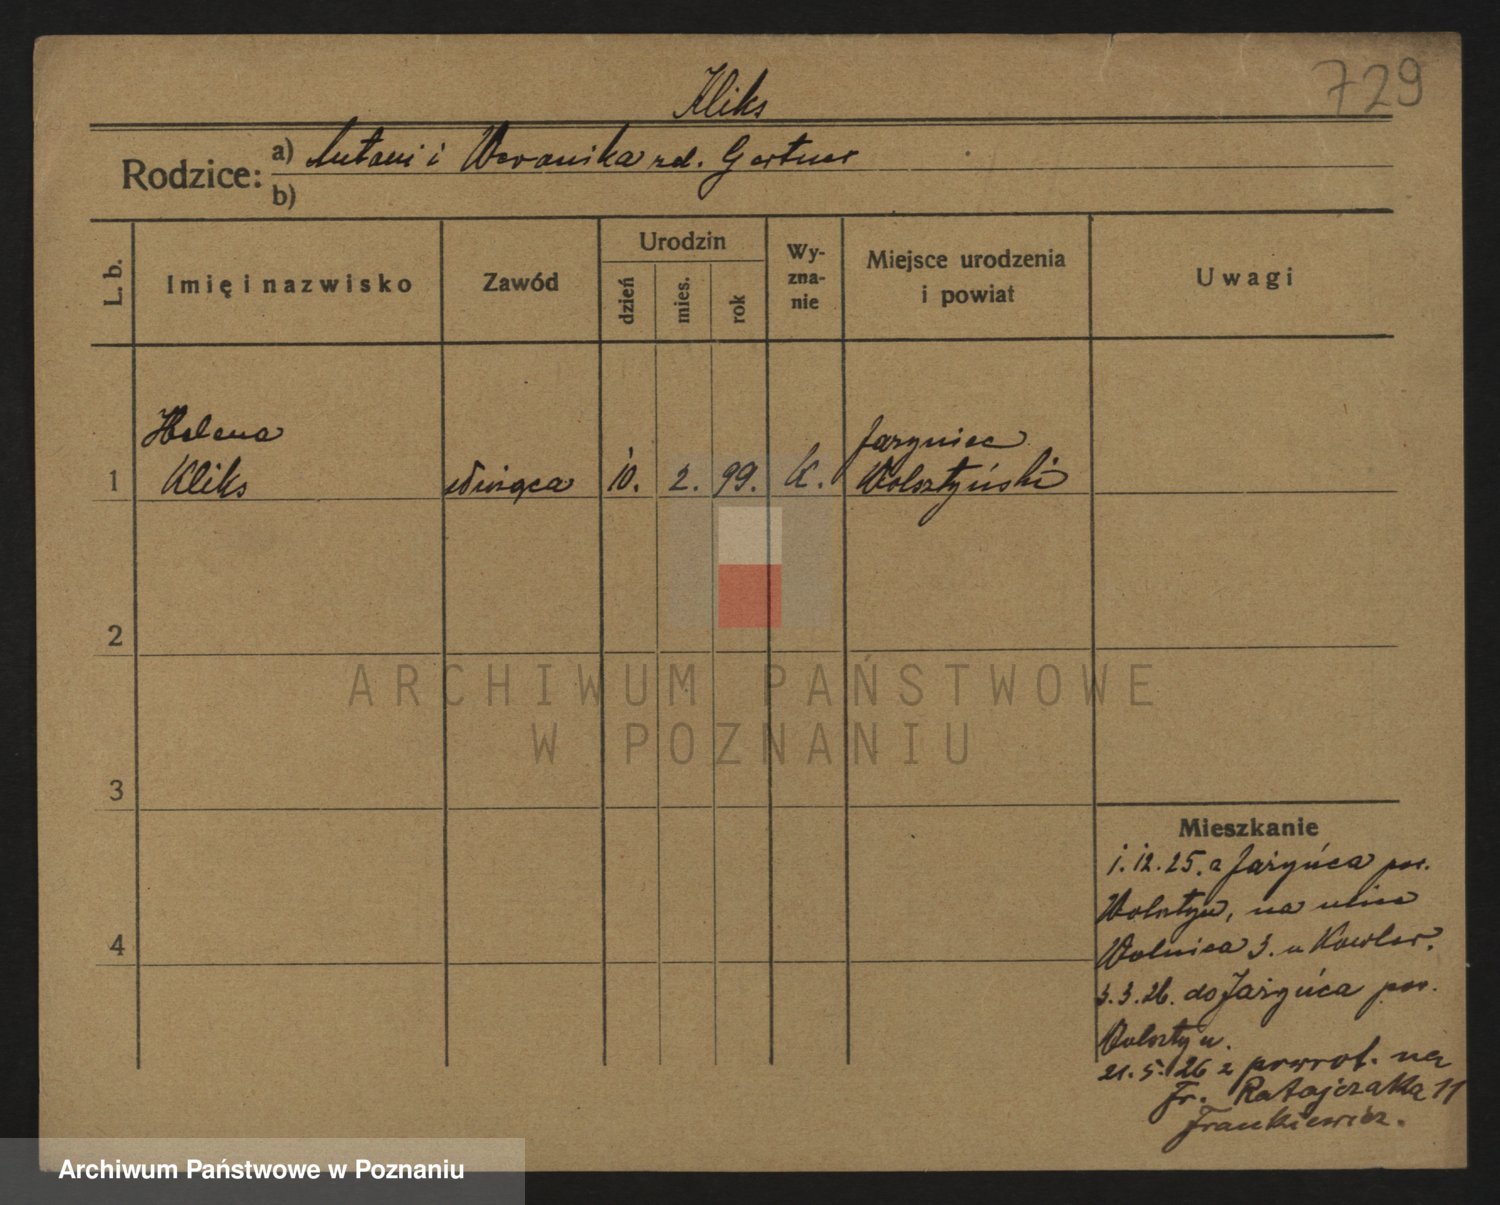 729
Kliks
Rodzice: a) Antoni i Weronika zd. Gertner
b)
L. b. Imię i nazwisko Zawód Urodzin dzień mies. rok Wy-zna-nie Miejsce urodzenia i powiat Uwagi
Helena Jarzyniec
1 Kliks służąca 10. 2. 99. K. Wolsztyński
2
ARCHIWUM PAŃSTWOWE
W POZNANIU
3
Mieszkanie
1.12.25. z Jażyńca pow.
Wolsztyn, na ulice
4 Wolnica 3. u Kowler.
3.3.26. do Jażyńca pow.
Wolsztyn.
21.5.26 z powrot. na
Fr. Ratajczaka 11
Frankiewicz.
Archiwum Państwowe w Poznaniu